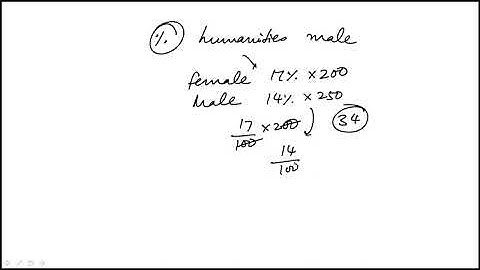 % humanities male
female 17% × 200
Male 14% × 250
17/100 × 200 34
14/100